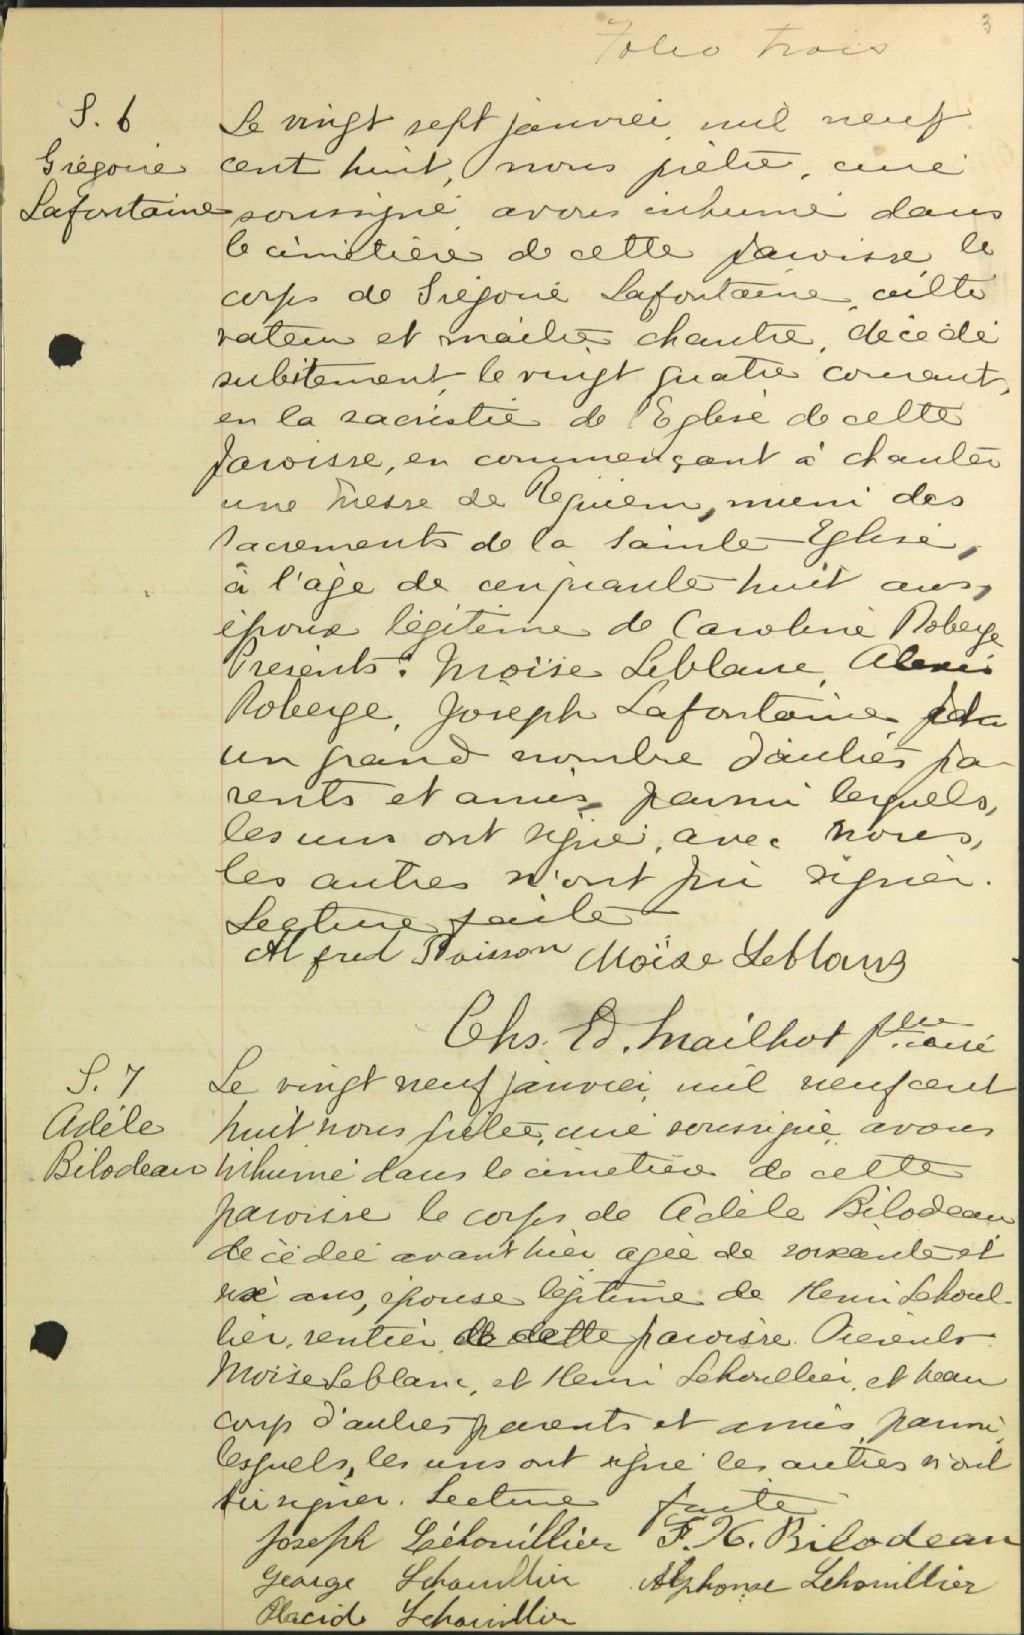 3
Folio trois
S. 6
Grégoire
Lafontaine
Le vingt sept janvier mil neuf
cent huit, nous prêtre, curé
soussigné avons inhumé dans
le cimetière de cette paroisse le
corps de Grégoire Lafontaine, culti
vateur et maître chantre, décédé
subitement le vingt quatre courant,
en la sacristie de l'Eglise de cette
paroisse, en commençant à chanter
une messe de Requiem, muni des
sacrements de la Sainte Eglise,
à l'age de cinquante huit ans,
époux légitime de Caroline Roberge
Présents: Moïse Leblanc, Alexis
Roberge, Joseph Lafontaine
un grand nombre d'autres pa-
rents et amis, parmi lesquels,
les uns ont signé avec nous,
les autres n'ont pu signer.
Lecture faite
Alfred Poisson Moïse Leblanc
Chs. Ed. Mailhot ptre curé
S. 7
Adèle
Bilodeau
Le vingt neuf janvier mil neuf cent
huit nous prêtre, curé soussigné avons
inhumé dans le cimetière de cette
paroisse le corps de Adèle Bilodeau
décédée avant hier agée de soixante et
six ans, épouse légitime de Henri Lehoul-
lier, rentier de cette paroisse. Présents
Moïse Leblanc, et Henri Lehoullier, et beau
coup d'autres parents et amis parmi
lesquels, les uns ont signé les autres n'ont
su signer. Lecture faite
Joseph Léhouillier F. X. Bilodeau
George Lehouillier Alphonse Lehouillier
Placide Lehouillier